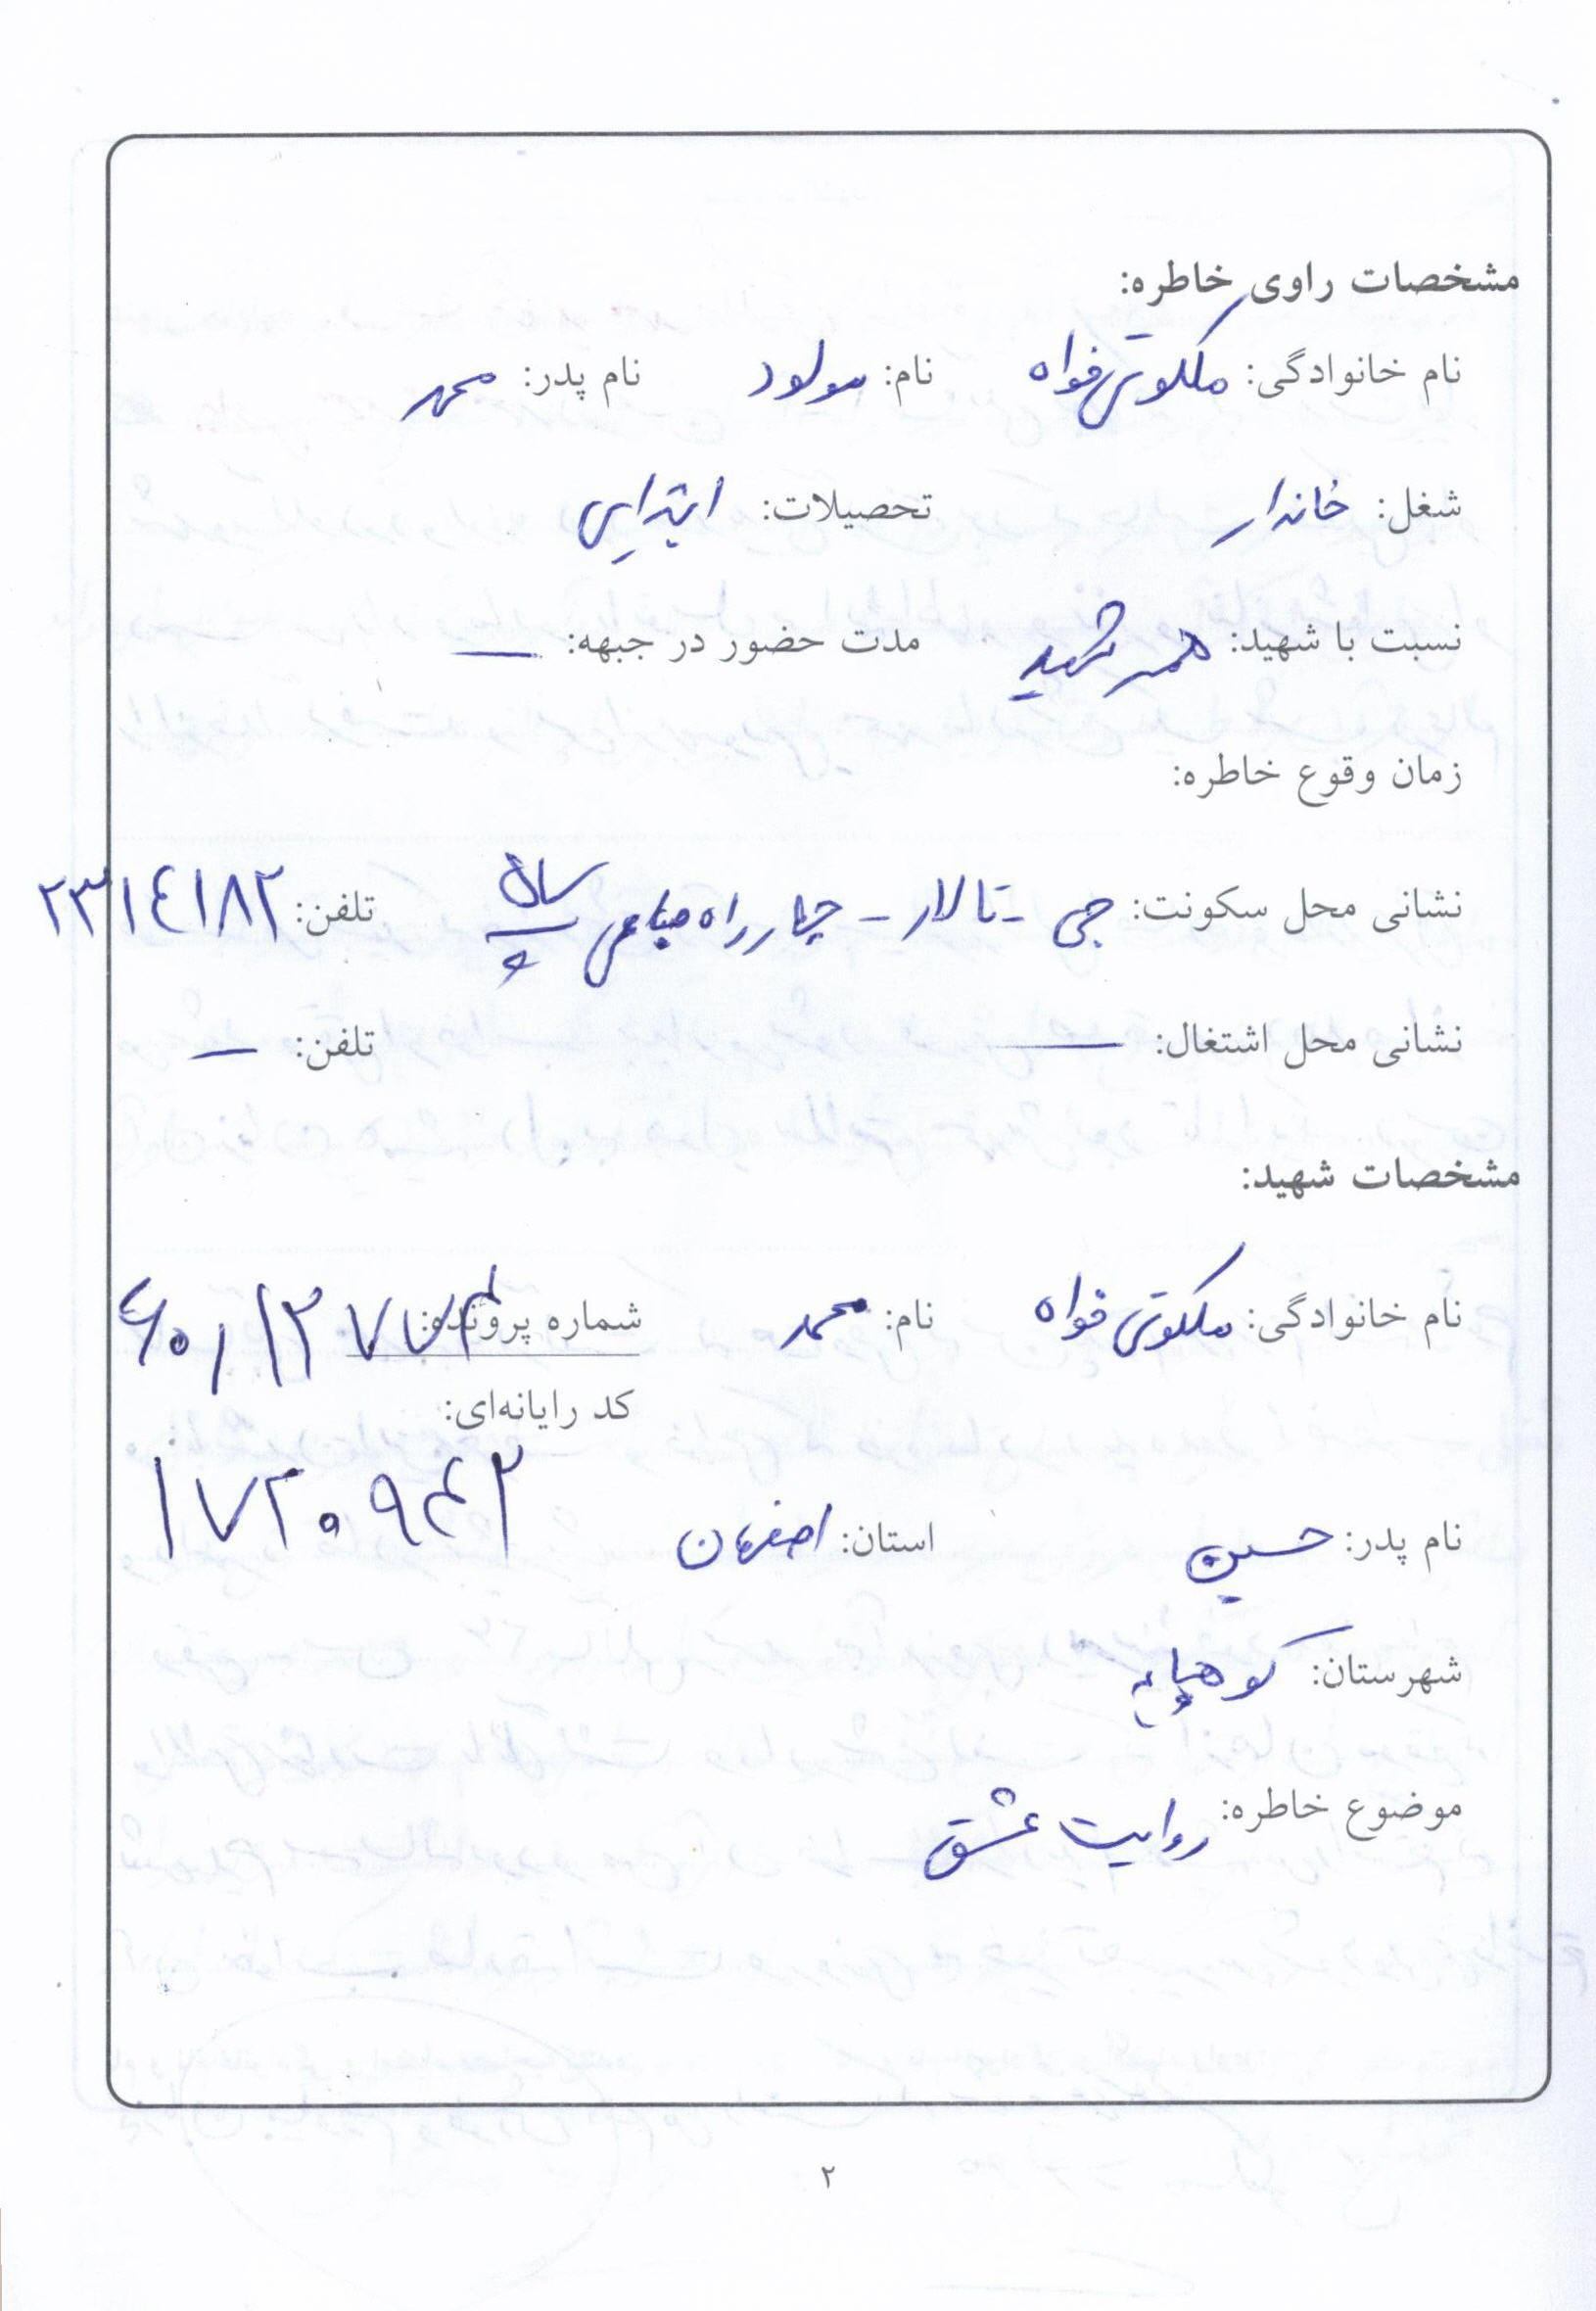 مشخصات راوی خاطره:
نام خانوادگی: ملکوتی خواه نام: مولود نام پدر: محمد
شغل: خاندار تحصیلات: ابتدایی
نسبت با شهید: همسر شهید مدت حضور در جبهه: —
زمان وقوع خاطره:
نشانی محل سکونت: جی - تالار - چهار راه صباحی تلفن: ۲۳۱۴۱۸۲
نشانی محل اشتغال: — تلفن: —
مشخصات شهید:
نام خانوادگی: ملکوتی خواه نام: محمد شماره پرونده:
کد رایانه‌ای:
۱۷۲۰۹۴۲
نام پدر: حسین استان: اصفهان
شهرستان: کوهپایه
موضوع خاطره: روایت عشق
۲